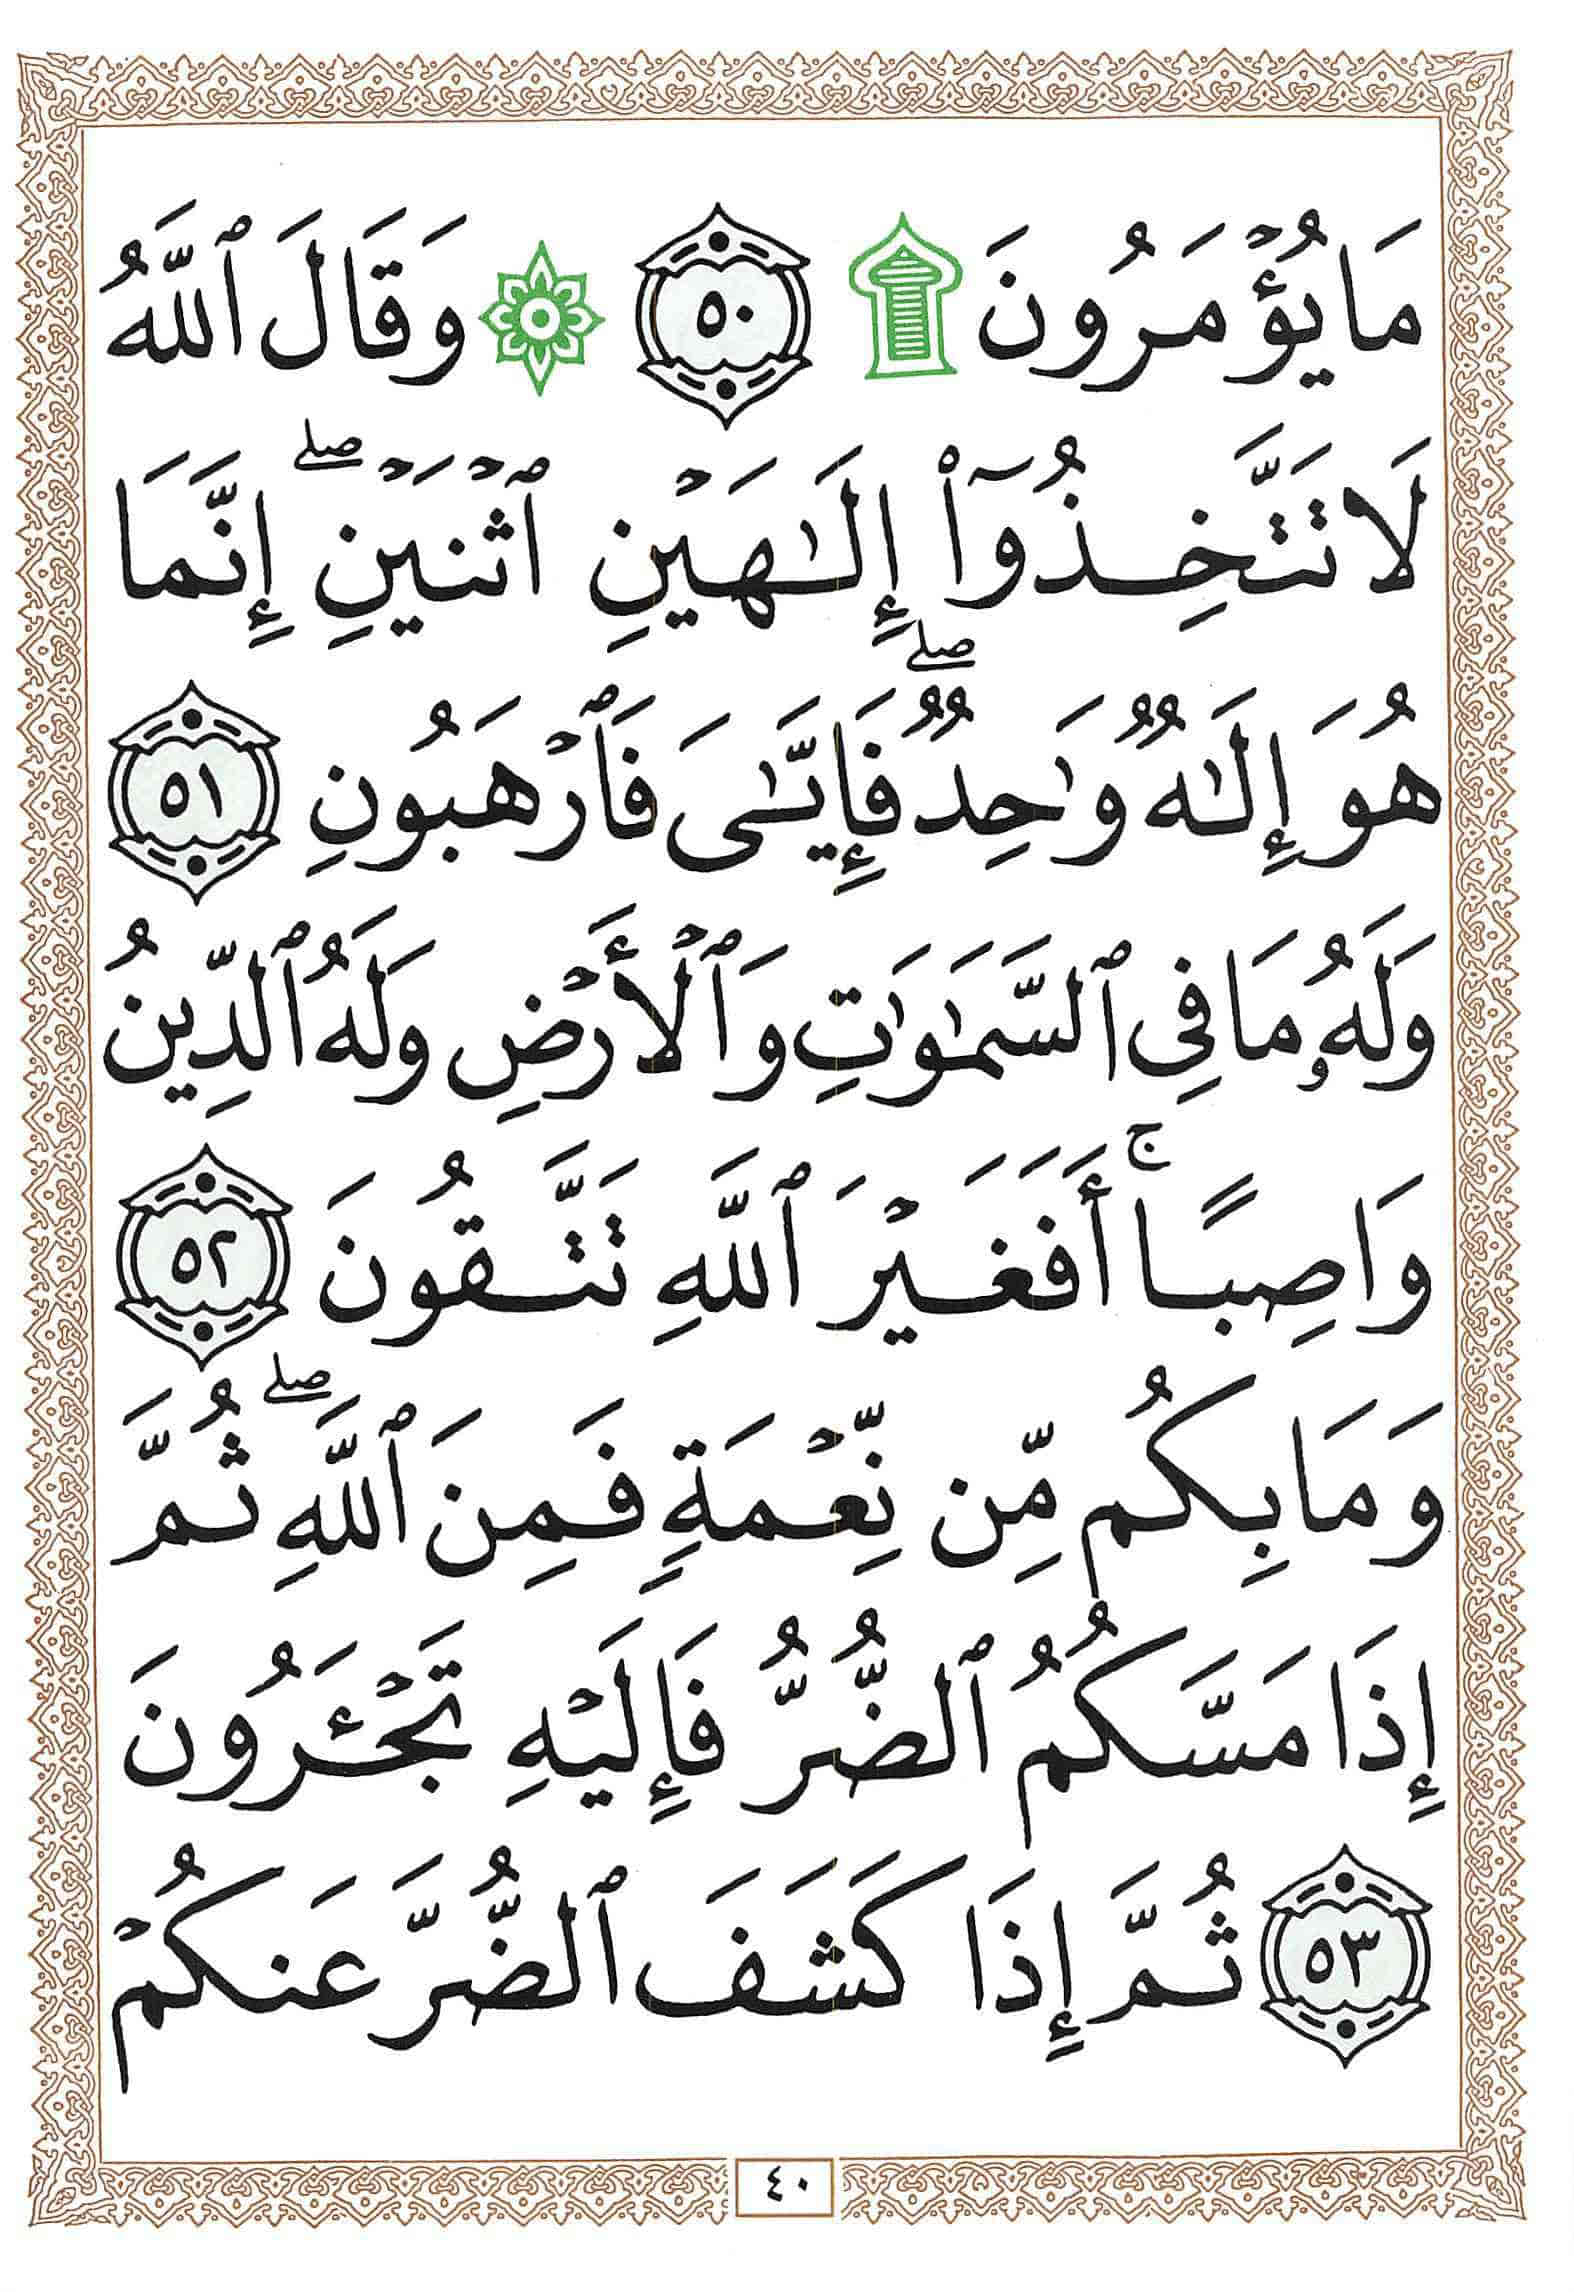 مَا يُؤْمَرُونَ ۩ ٥٠ ۞ وَقَالَ ٱللَّهُ
لَا تَتَّخِذُوٓا۟ إِلَـٰهَيْنِ ٱثْنَيْنِ ۖ إِنَّمَا
هُوَ إِلَـٰهٌ وَٰحِدٌ ۖ فَإِيَّـٰىَ فَٱرْهَبُونِ ٥١
وَلَهُۥ مَا فِى ٱلسَّمَـٰوَٰتِ وَٱلْأَرْضِ وَلَهُ ٱلدِّينُ
وَاصِبًا ۚ أَفَغَيْرَ ٱللَّهِ تَتَّقُونَ ٥٢
وَمَا بِكُم مِّن نِّعْمَةٍ فَمِنَ ٱللَّهِ ۖ ثُمَّ
إِذَا مَسَّكُمُ ٱلضُّرُّ فَإِلَيْهِ تَجْـَٔرُونَ
٥٣ ثُمَّ إِذَا كَشَفَ ٱلضُّرَّ عَنكُمْ
٤٠